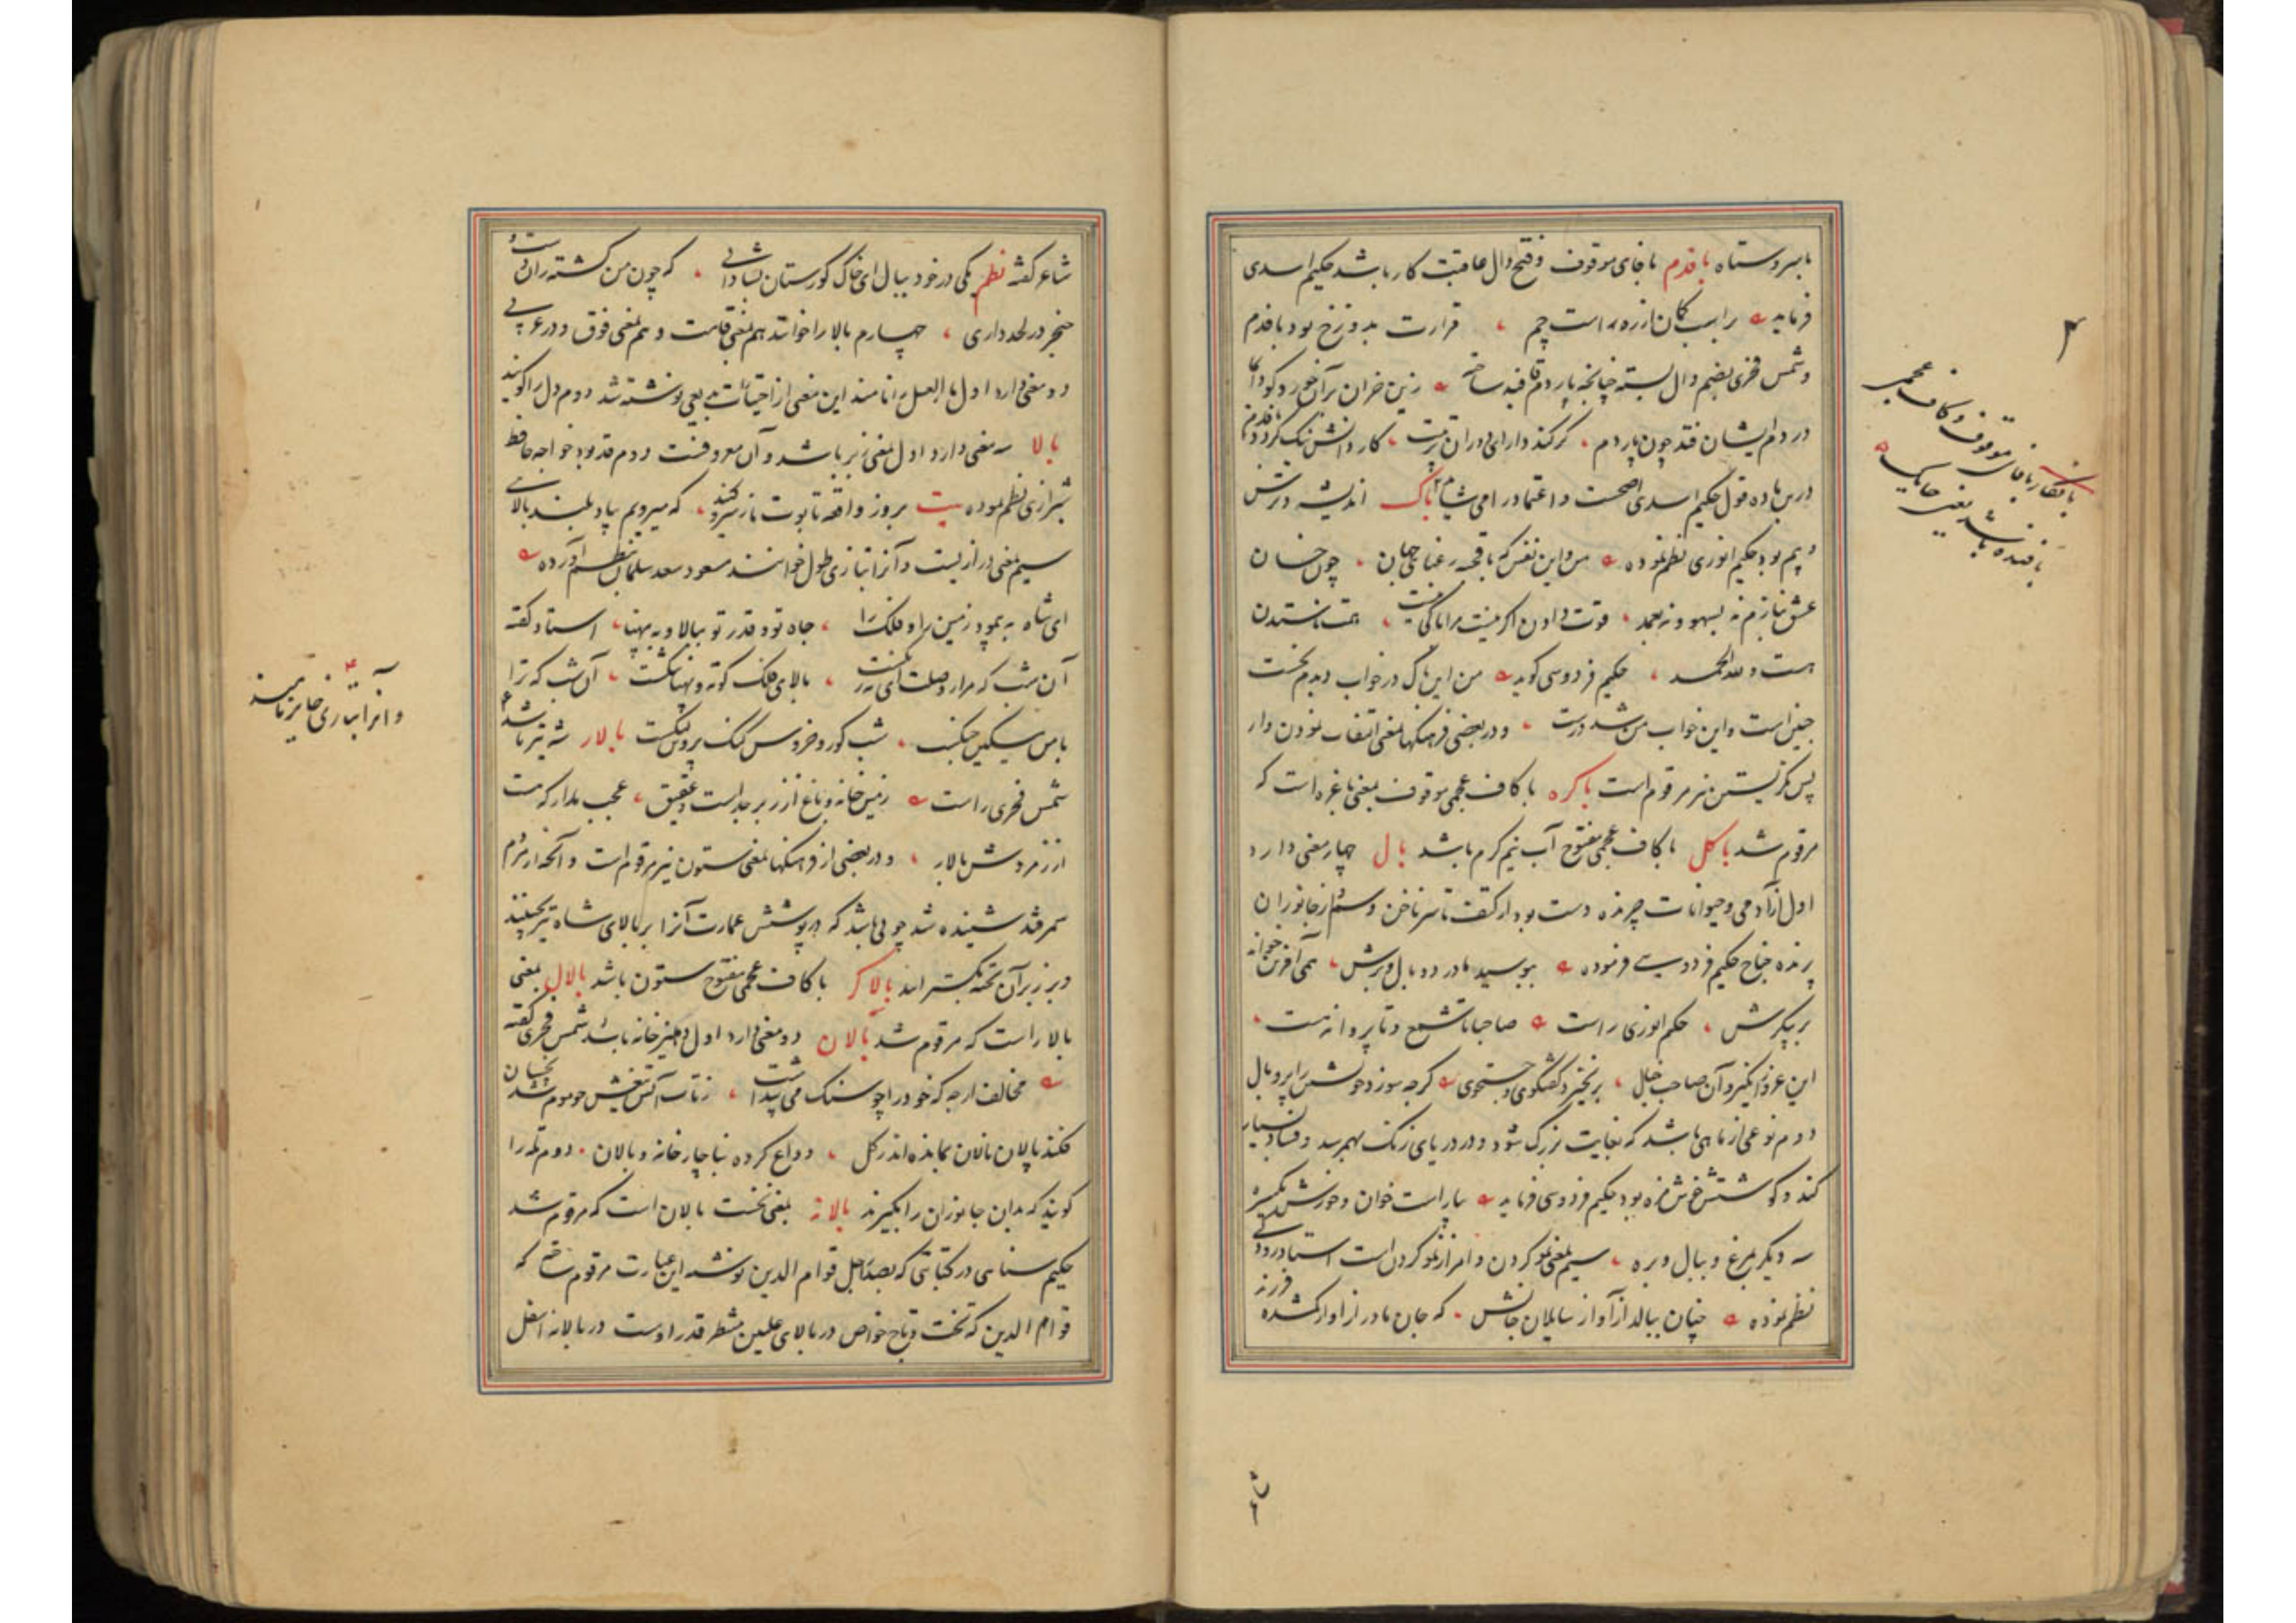 با سر و ستاه بافدم با فای موقوف و فتح دال عاقبت کار باشد حکیم اسدی
فرماید را سب کمان از زه راست چم قرارت بدوزخ بود بافدم
و شمس فخری بضم دال بسته چنانچه با پاردم قافیه ساخته زین خران بر آخور
در دم ایشان فتد چون پاردم کار دانش
درین ماده قول حکیم اسدی اصحست و اعتماد را می شاید باک اندیشه و ترس
و بیم بود حکیم انوری نظم نموده من و این نفس که با قحبه رعنا جهان چون خسان
عشق نبازم نه بسهو و نه بعمد قوت دادن اگر نیست مرا باکی نیست همت ناستدن
هست و لله الحمد حکیم فردوسی گوید من این باک در خواب دیدم نخست
چنین است و این خواب من شد درست و در بعضی فرهنگها بمعنی التفات نمودن و از
پس نگریستن نیز مرقوم است باکره با کاف عجمی موقوف بمعنی باغره است که
مرقوم شد باکل با کاف عجمی مفتوح آب نیم گرم باشد بال چهار معنی دارد
اول از آدمی و حیوانات چرنده دست بود از کتف تا سر ناخن و سم و از جانوران
پرنده جناح حکیم فردوسی فرموده ببوسید مادر دو بال و برش همی آفرین خواند
بر پیکرش حکیم انوری راست صاحبا تا شمع و تا پروانه هست
این عزوز انگیز و آن صاحب خیل برنخیزد گفتگوی و جستجوی گرچه سوزد خویشتن را پر و بال
دوم نوعی از ماهی باشد که بغایت بزرگ شود و در دریای زنگ بهمرسد و فساد بسیار
کند و گوشتش خوش مزه بود حکیم فردوسی فرماید بیاراست خوان و خورش
سه دیگر بمرغ و ببال و بره سیم بمعنی نمو کردن و امر از نمو کردن است استاد رودکی
نظم نموده چنان ببالد از آواز سایلان جانش که جان مادر از آواز گمشده فرزند
۳
بافکار با فای موقوف و کاف عجمی
بافنده باشد یعنی حایک
شاعر گفته نظم یکی در خود ببال ای خاک گورستان بشادابی که چون من کشته زان دست و
خنجر در لحد داری چهارم بالا را خوانند هم بمعنی قامت و هم بمعنی فوق و در عربی
دو معنی دارد اول دوم دل را گویند
بالا سه معنی دارد اول بمعنی زبر باشد و آن معروفست دوم قد بود خواجه حافظ
شیرازی نظم نموده بیت بروز واقعه تابوت ما ز سرو کنید که میرویم بیاد بلند بالای
سیم بمعنی درازیست و آنرا بتازی طول خوانند مسعود سعد سلمان بنظم آورده
ای شاه بپیمود زمین را و فلک را جاه تو و قدر تو ببالا و بپهنا استاد گفته
آن شب که مرا ز وصلت ای مه رنگست بالای فلک کوته و پهنا تنگست آن شب که ترا
با من مسکین جنگست شب کور و خروس گنگ و پروین لنگست بالار شه تیر باشد
شمس فخری راست زمین خانه و باغ از زبرجد است و عقیق عجب مدار که هست
از زمرد ش بالار و در بعضی از فرهنگها بمعنی ستون نیز مرقوم است و آنچه از مردم
سمرقند شنیده شد چوبی باشد که در پوشش عمارت آنرا بر بالای شاه تیر بچینند
و بر زبر آن تخته بگسترانند بالاگر با کاف عجمی مفتوح ستون باشد بالال بمعنی
بالار است که مرقوم شد بالان دو معنی دارد اول دهلیز خانه باشد شمس فخری گفته
مخالف ارچه که خود را چو سنگ می پنداشت ز تاب آتش تیغش چو موم شد بخسان
فکند پالان نالان بمانده اندر گل وداع کرده بناچار خانه و بالان دوم تله را
گویند که بدان جانوران را بگیرند بالانه بمعنی نخست بالان است که مرقوم شد
حکیم سنایی در کتابتی که بصدر اجل قوام الدین نوشته این عبارت مرقوم ساخته که
قوام الدین که تخت و تاج خواص در بالای علیین منتظر قدر اوست در بالانه اسفل
و آنرا بتازی جایز نامند